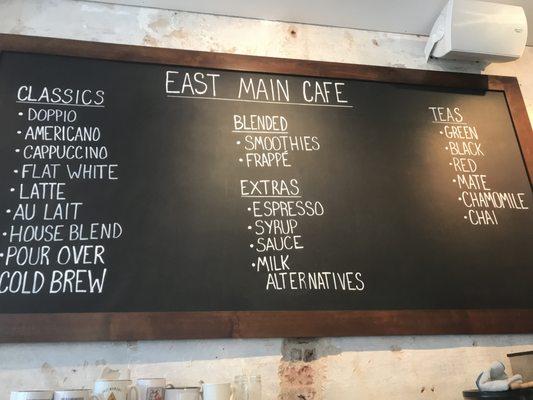 EAST MAIN CAFE
CLASSICS
• DOPPIO
• AMERICANO
• CAPPUCCINO
• FLAT WHITE
• LATTE
• AU LAIT
• HOUSE BLEND
• POUR OVER
COLD BREW
BLENDED
• SMOOTHIES
• FRAPPÉ
EXTRAS
• ESPRESSO
• SYRUP
• SAUCE
• MILK
ALTERNATIVES
TEAS
• GREEN
• BLACK
• RED
• MATE
• CHAMOMILE
• CHAI